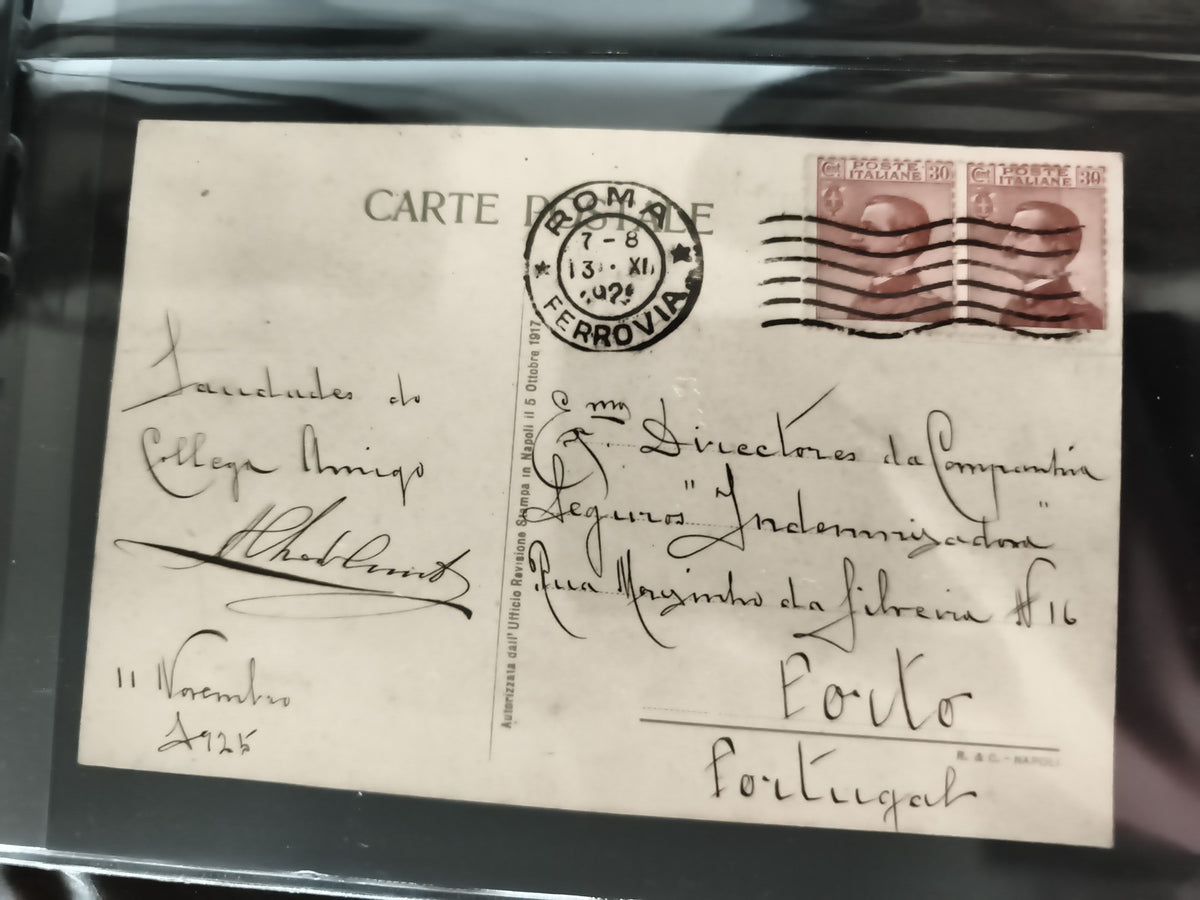 CARTE POSTALE
ROMA
7-8
13 · XI
192
FERROVIA
Ct POSTE ITALIANE 30
Ct POSTE ITALIANE 30
Saudades do
Collega Amigo
11 Novembro
1925
Autorizzata dall'Ufficio Revisione Stampa in Napoli il 5 Ottobre 1917
Ex.mos Directores da Companhia
Seguros "Indemnisadora"
Rua Mousinho da Silveira Nº 16
Porto
R. & C. - NAPOLI
Portugal